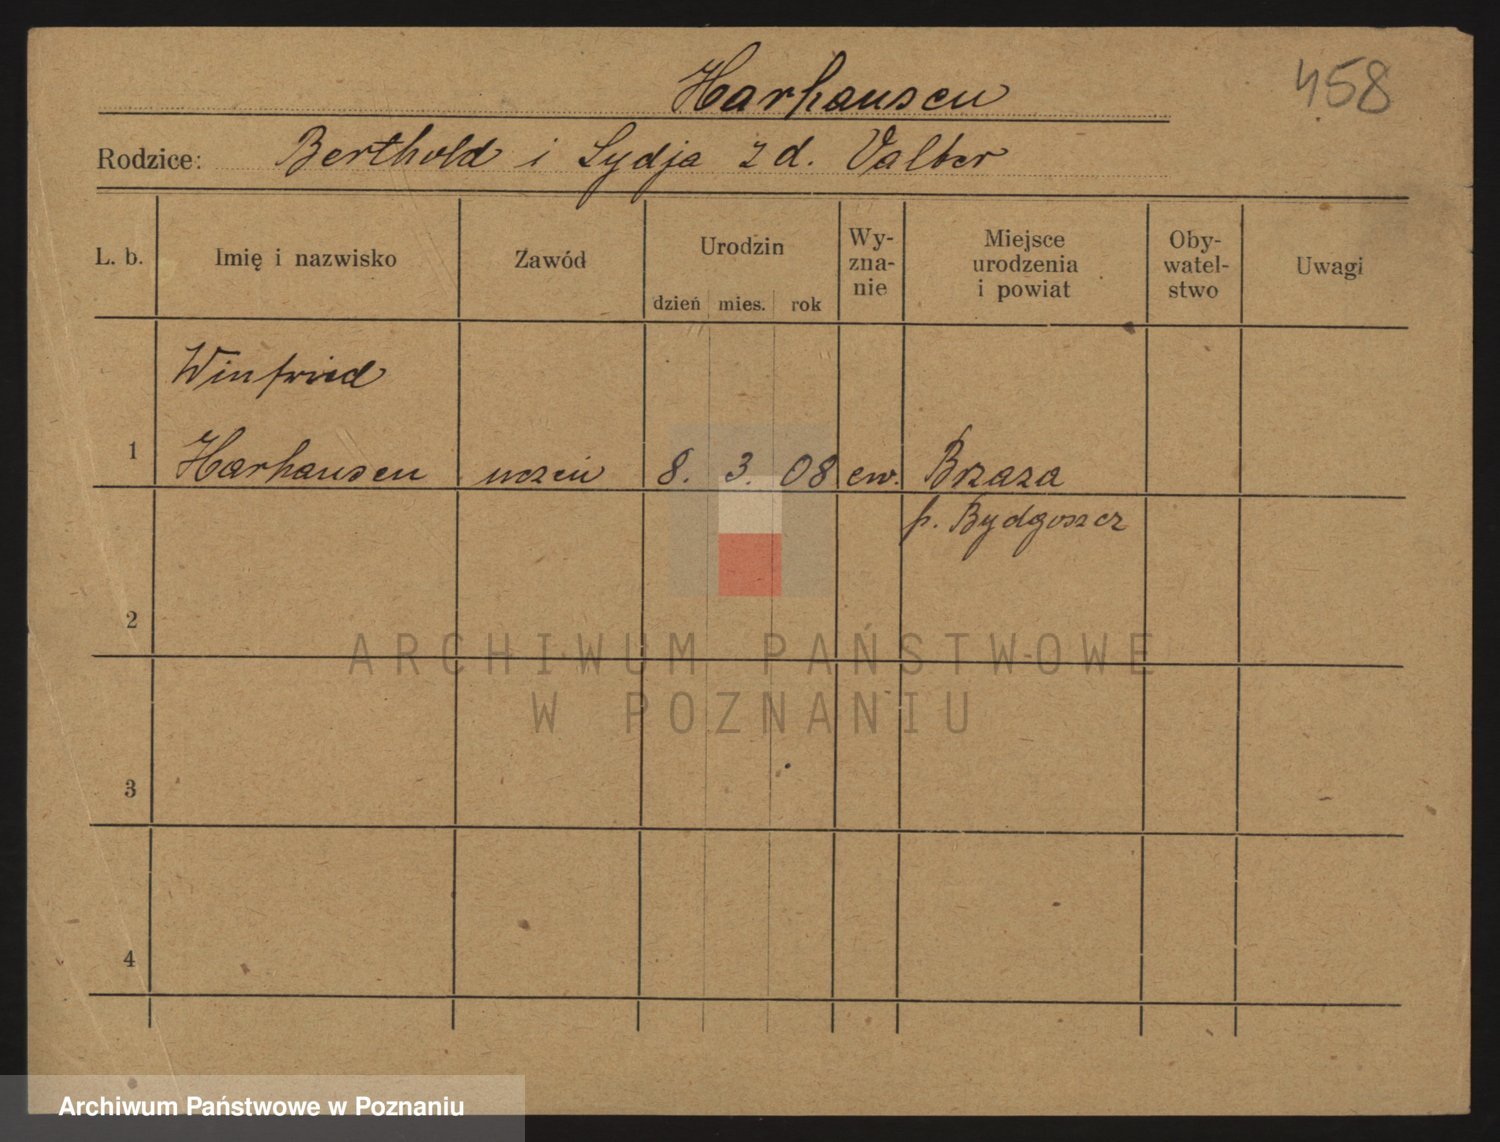 458
Harhausen
Rodzice: Berthold i Lydja z d. Valber
L. b. Imię i nazwisko Zawód Urodzin dzień mies. rok Wy-zna-nie Miejsce urodzenia i powiat Oby-watel-stwo Uwagi
Winfried
1 Harhausen uczeń 8. 3. 08 ew. Brzaza
p. Bydgoszcz
2
ARCHIWUM PAŃSTWOWE
W POZNANIU
3
4
Archiwum Państwowe w Poznaniu